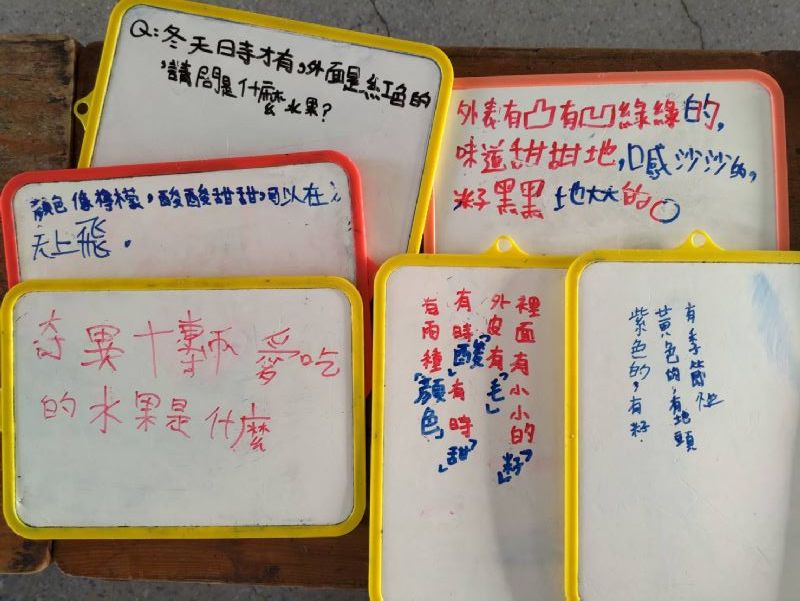 Q:冬天日寺才有,外面是紅色的
,請問是什麼水果?
外表有凸有凹綠綠的,
味道甜甜地,口感沙沙的,
籽黑黑地大大的。
顏色像檸檬,酸酸甜甜,可以在
天上飛。
奇異十 愛吃
的水果是什麼
裡面有小小的「籽」
外皮有「毛」
有時「酸」有時「甜」
有兩種「顏色」
有季節性
黃色的,有地頭
紫色的,有籽.